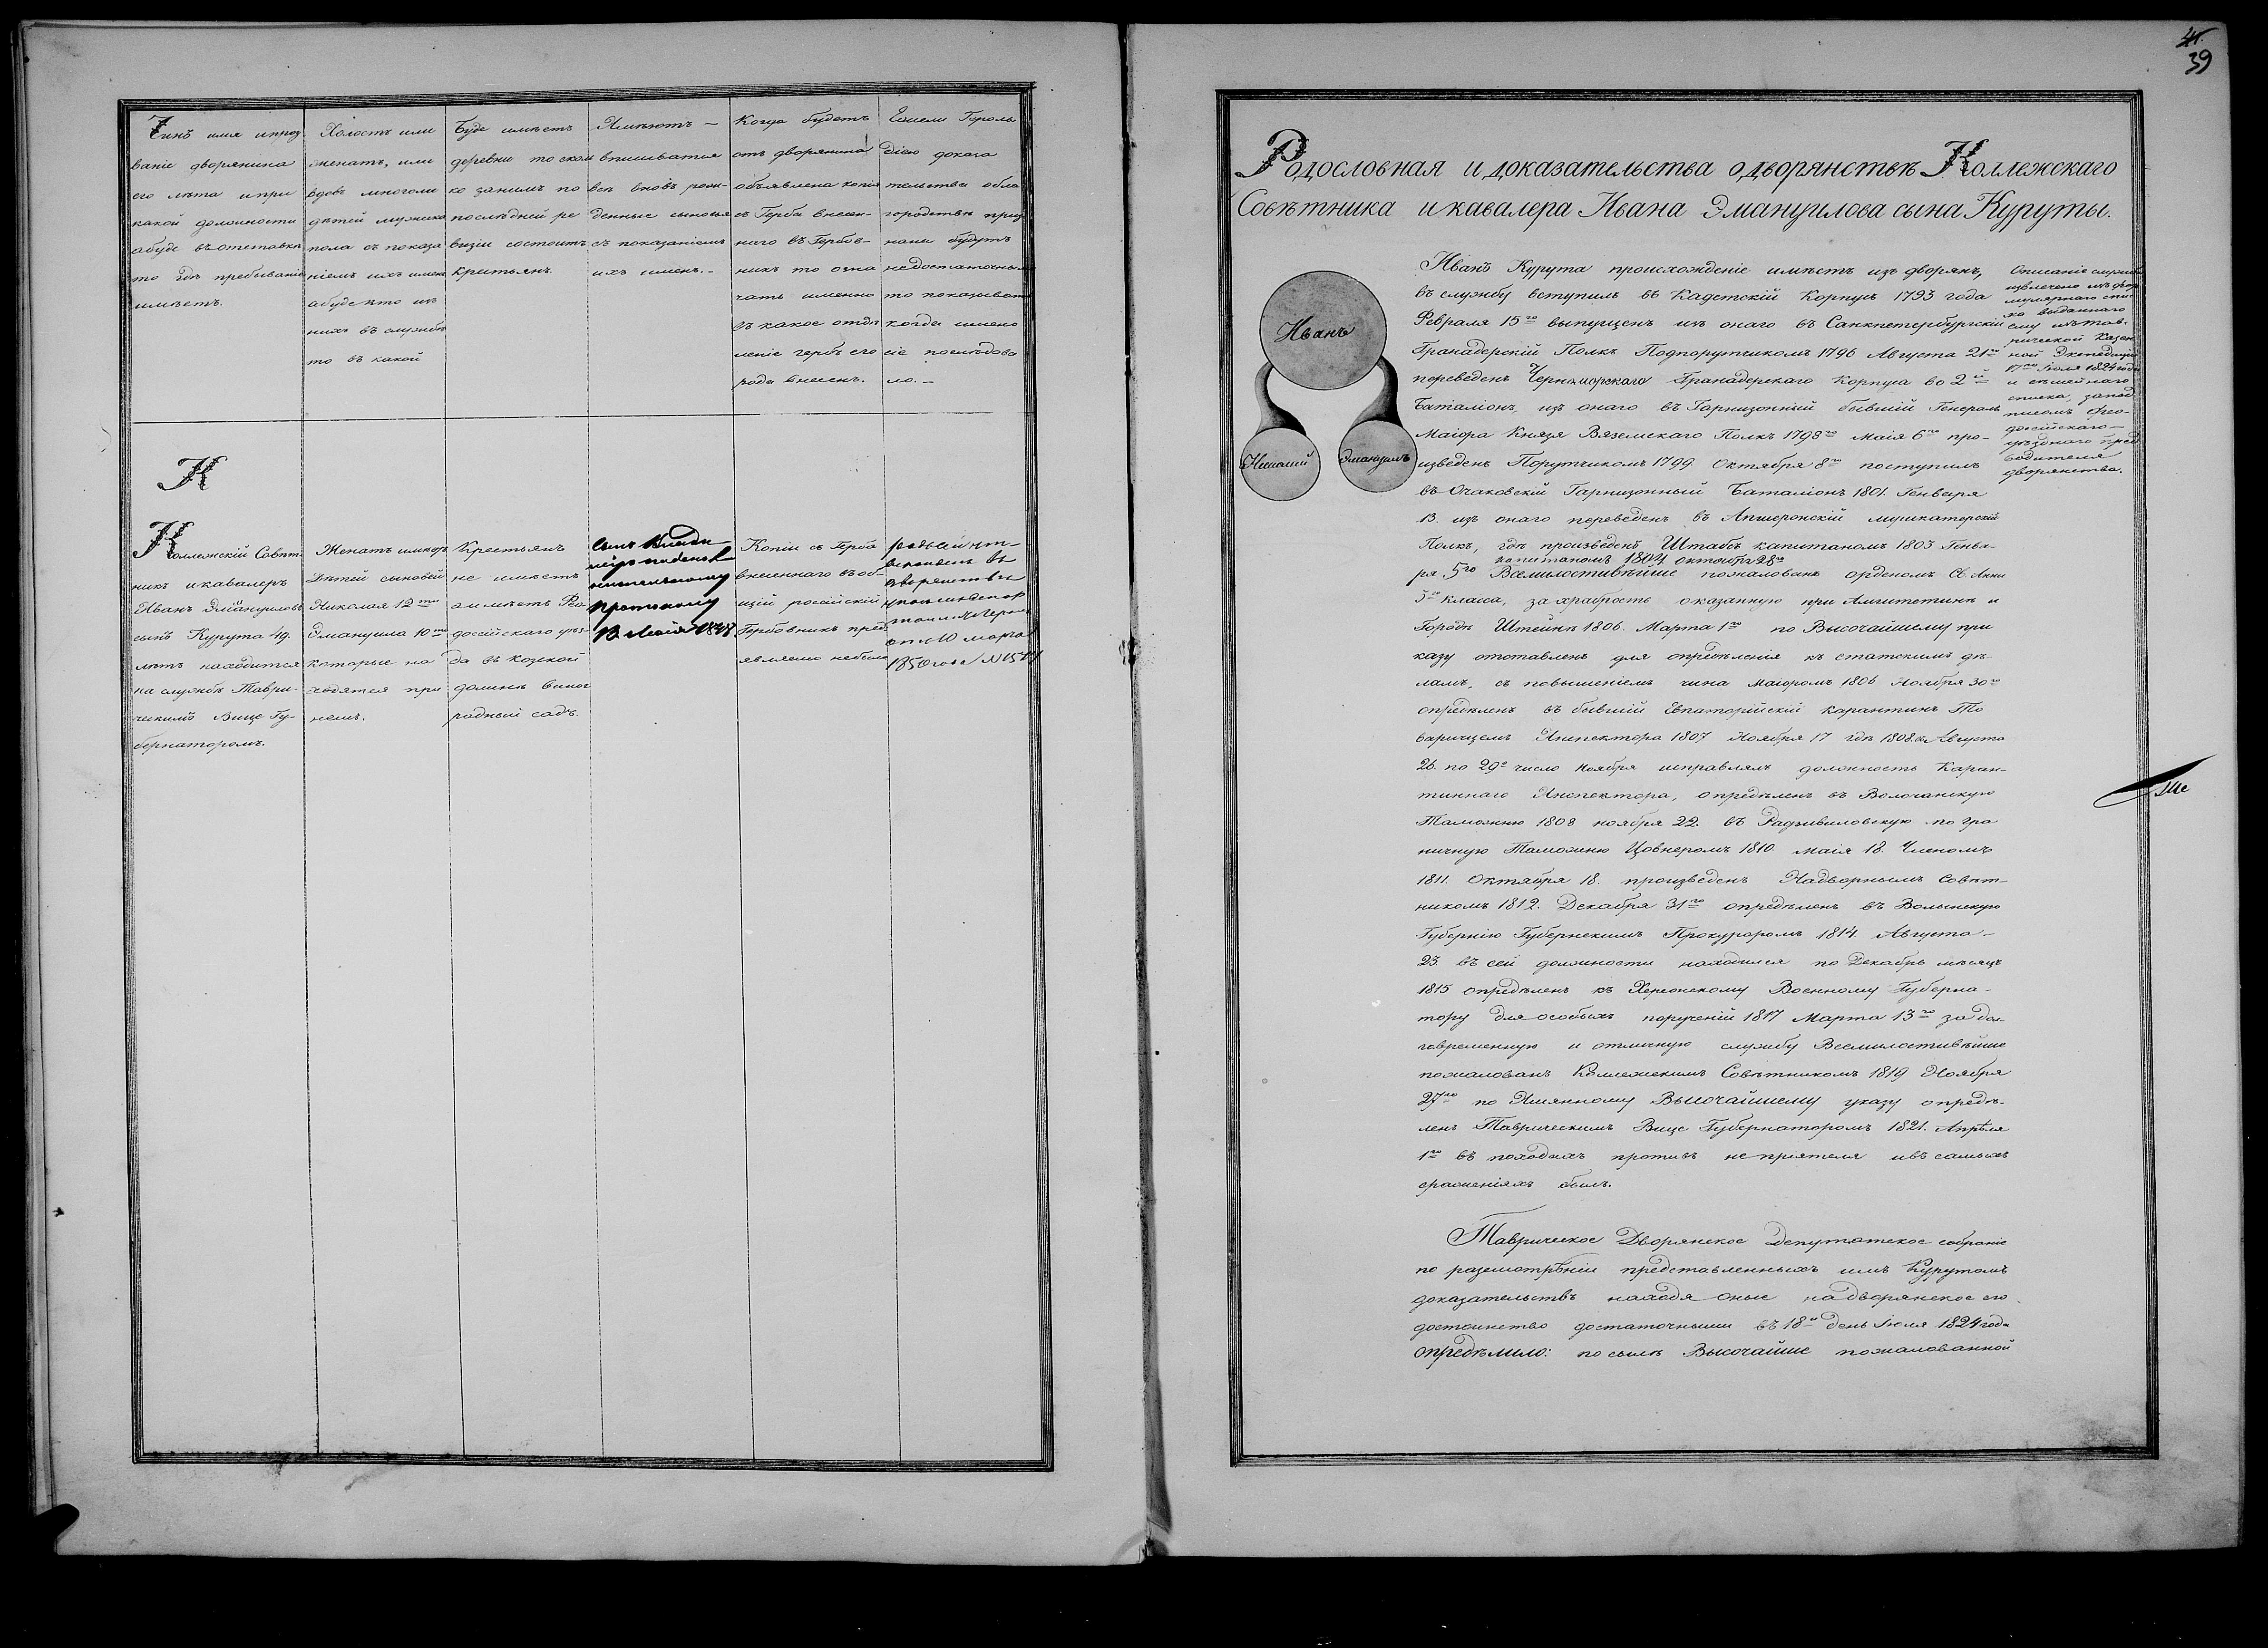 Чинъ имя ипроз
ваніе дворянина
его лѣта ипри
какой должности
абуде въотставкѣ
то гдѣ пребываніе
имѣетъ.
Холостъ или
женатъ, или
вдовъ многоли
дѣтей мужска
пола съ показа
ніемъ ихъ имен
абуде кто изъ
нихъ въ службѣ
то въ какой
Буде имѣетъ
деревни то сколь
ко занимъ по
послѣдней ре
визіи состоитъ
крестьянъ.
Имѣютъ —
вписыватся
всѣ вновь рож-
денные сыновья
съ показаніемъ
ихъ именъ. —
Когда будетъ
отъ дворянина
объявлена копія
съ Герба внесен-
наго въ Гербов-
никъ то озна
чать именно
въ какое отдѣ
леніе гербъ его
рода внесенъ.
Ежели Героль
діею доказа
тельства обла
городствѣ приз
наны будутъ
недостаточны
то показывать
когда имено
сіе послѣдова
ло. —
К
Коллежскій Совѣт
никъ икавалеръ
Иванъ Эмануиловъ
сынъ Курута 49.
лѣтъ находится
на службѣ Таври-
ческимъ Вице Гу-
бернаторомъ.
Женатъ имѣетъ
Дѣтей сыновей
Николая 12ти
Эмануила 10ти
которые на
ходятся при
немъ.
Крестьянъ
не имѣетъ
а имѣетъ Ѳео
досійскаго уѣз
да въ козской
долинѣ виног
радный садъ.
сынъ
протокому
13 Маія 1848
Копіи съ Герба
внесеннаго въ об-
щій россійскій
Гербовникъ пред
явлено небыло
родъ сей ут-
вержденъ въ
дворянствѣ
от 10 марта
1850 года № 1517
39
Родословная и доказательства одворянствѣ Коллежскаго
Совѣтника икавалера Ивана Эмануилова сына Куруты.
Иванъ
Николай
Эмануилъ
Иванъ Курута происхожденіе имѣетъ изъ дворянъ,
въ службу вступилъ въ Кадетскій Корпусъ 1793 года
Февраля 15го выпущенъ изъ онаго въ Санкпетербургскій
Гранадерскій Полкъ Подпорутчикомъ 1796 Августа 21го
переведенъ Черноморскаго Гранадерскаго Корпуса во 2й
Баталіонъ, изъ онаго въ Гарнизонный бывшій Генералъ
Маіора Князя Вяземскаго Полкъ 1798го маія 6го про-
изведенъ Порутчикомъ 1799. Октября 8го поступилъ
въ Очаковскій Гарнизонный Баталіонъ 1801. Генваря
13. изъ онаго переведенъ въ Апшеронскій мушкатерскій
Полкъ, гдѣ произведенъ Штабсъ капитаномъ 1803 Генва-
капитаномъ 1804 октября 28го
ря. 5го Всемилостивѣйше пожалованъ орденомъ Св. Анны
3го класса, за храбрость оказанную при Амштетинѣ и
Городѣ Штейнѣ 1806. Марта 1го по Высочайшему при
казу отставленъ для опредѣленія къ статскимъ дѣ
ламъ, съ повышеніемъ чина Маіоромъ 1806 Ноября 30го
опредѣленъ въ бывшій Евпаторійскій карантинъ То
варищемъ Инспектора 1807 Ноября 17 гдѣ 1808. съ Августа
26. по 29е число Ноября исправлялъ должность Каран-
тиннаго Инспектора, опредѣленъ въ Волочанскую
Таможню 1808 ноября 22. въ Радзивиловскую погра
ничную Таможню Цолнеромъ 1810. маія 18. Членомъ
1811. Октября 18. произведенъ Надворнымъ Совѣт-
никомъ 1812. Декабря 31го опредѣленъ въ Волынскую
Губернію Губернскимъ Прокуроромъ 1814. Августа —
23. въ сей должности находился по Декабрь мѣсяцъ
1815 опредѣленъ къ Херсонскому Военному Губерна-
тору для особыхъ порученій 1817 Марта 13го за дол
говременную и отличную службу Всемилостивѣйше
пожалованъ Коллежскимъ Совѣтникомъ 1819 Ноября
27го по Имянному Высочайшему указу опредѣ-
ленъ Таврическимъ Вице Губернаторомъ 1821. Апрѣля
1го въ походахъ противъ непріятеля ивъ самыхъ
сраженіяхъ былъ.
Таврическое Дворянское Депутатское собраніе
по разсмотрѣніи представленныхъ имъ Курутомъ
доказательствъ находя оные на дворянское его
достоинство достаточными въ 18й день Іюля 1824 года
опредѣлило: по силѣ Высочайше пожалованной
Описаніе службы
извлечено изъ фор
мулярнаго спис
ка выданнаго
ему изъ Тав-
рической Казен
ной Экспедиціи
17го Іюля 1824 года
и
списка, за под
писомъ Ѳео-
досійскаго —
уѣзднаго пред
водителя
дворянства.